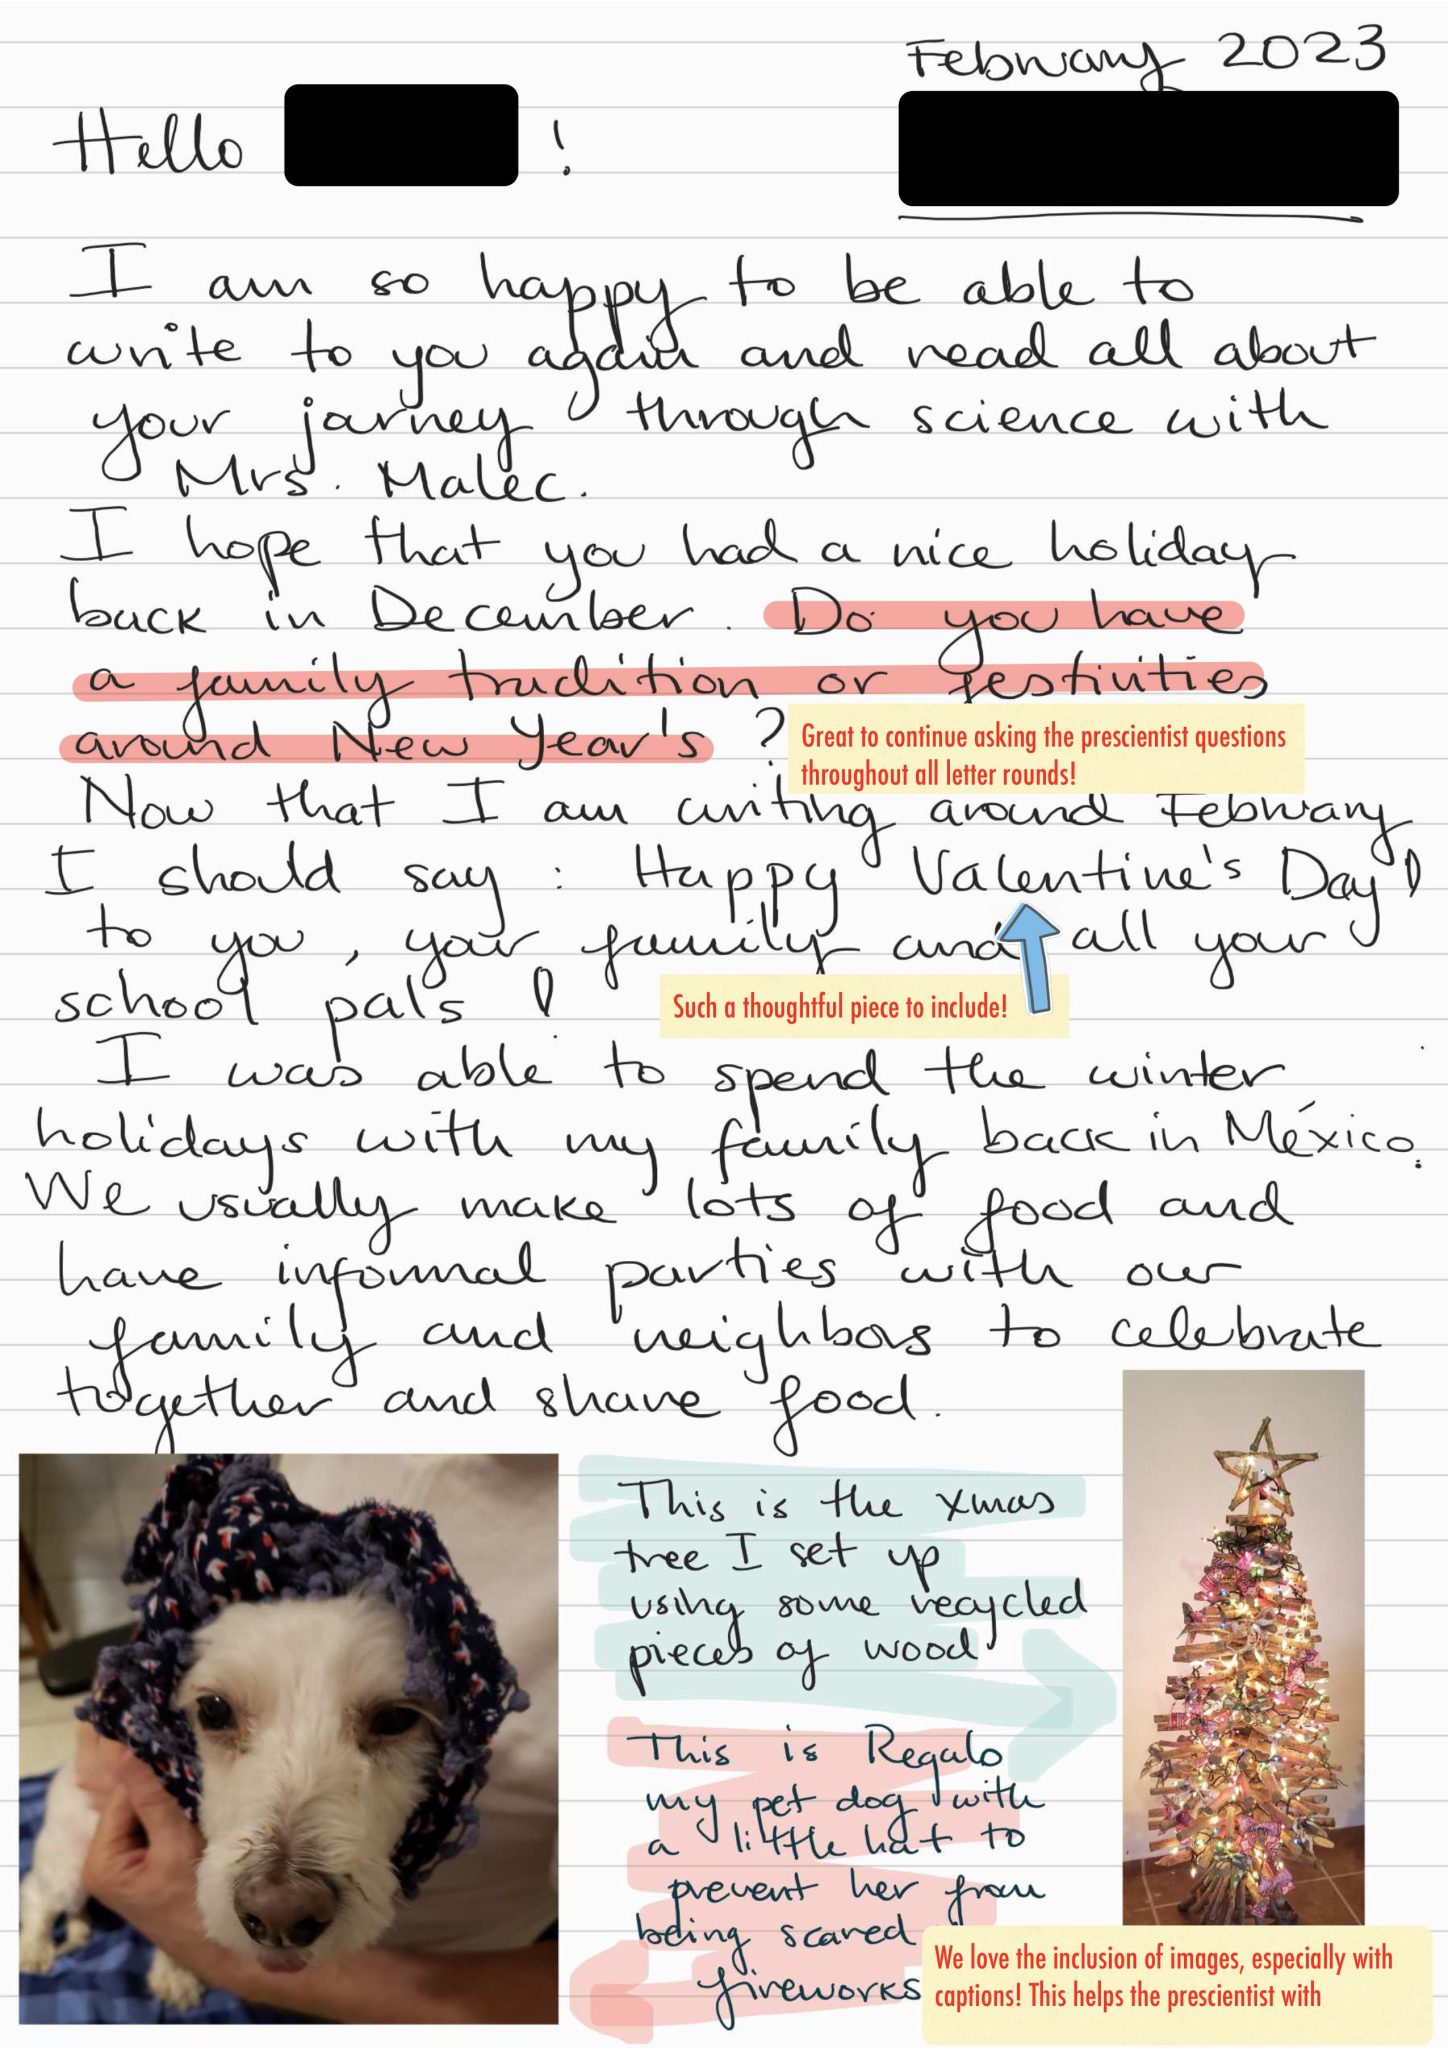 February 2023
Hello !
I am so happy to be able to
write to you again and read all about
your jorney through science with
Mrs. Malec.
I hope that you had a nice holiday
back in December. Do you have
a family tradition or festivities
around New Year's ?
Great to continue asking the prescientist questions
throughout all letter rounds!
Now that I am writing around February
I should say : Happy Valentine's Day!
to you, your family and all your
school pals !
Such a thoughtful piece to include!
I was able to spend the winter
holidays with my family back in México.
We usually make lots of food and
have informal parties with our
family and neighbors to celebrate
together and share food.
This is the xmas
tree I set up
using some recycled
pieces of wood
This is Regalo
my pet dog with
a little hat to
prevent her from
being scared
fireworks
We love the inclusion of images, especially with
captions! This helps the prescientist with